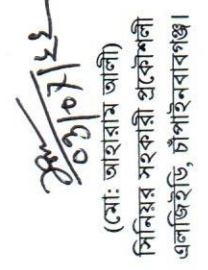 ০৩/০৭/২২
(মো: আহারাম আলী)
সিনিয়র সহকারী প্রকৌশলী
এলজিইডি, চাঁপাইনবাবগঞ্জ।